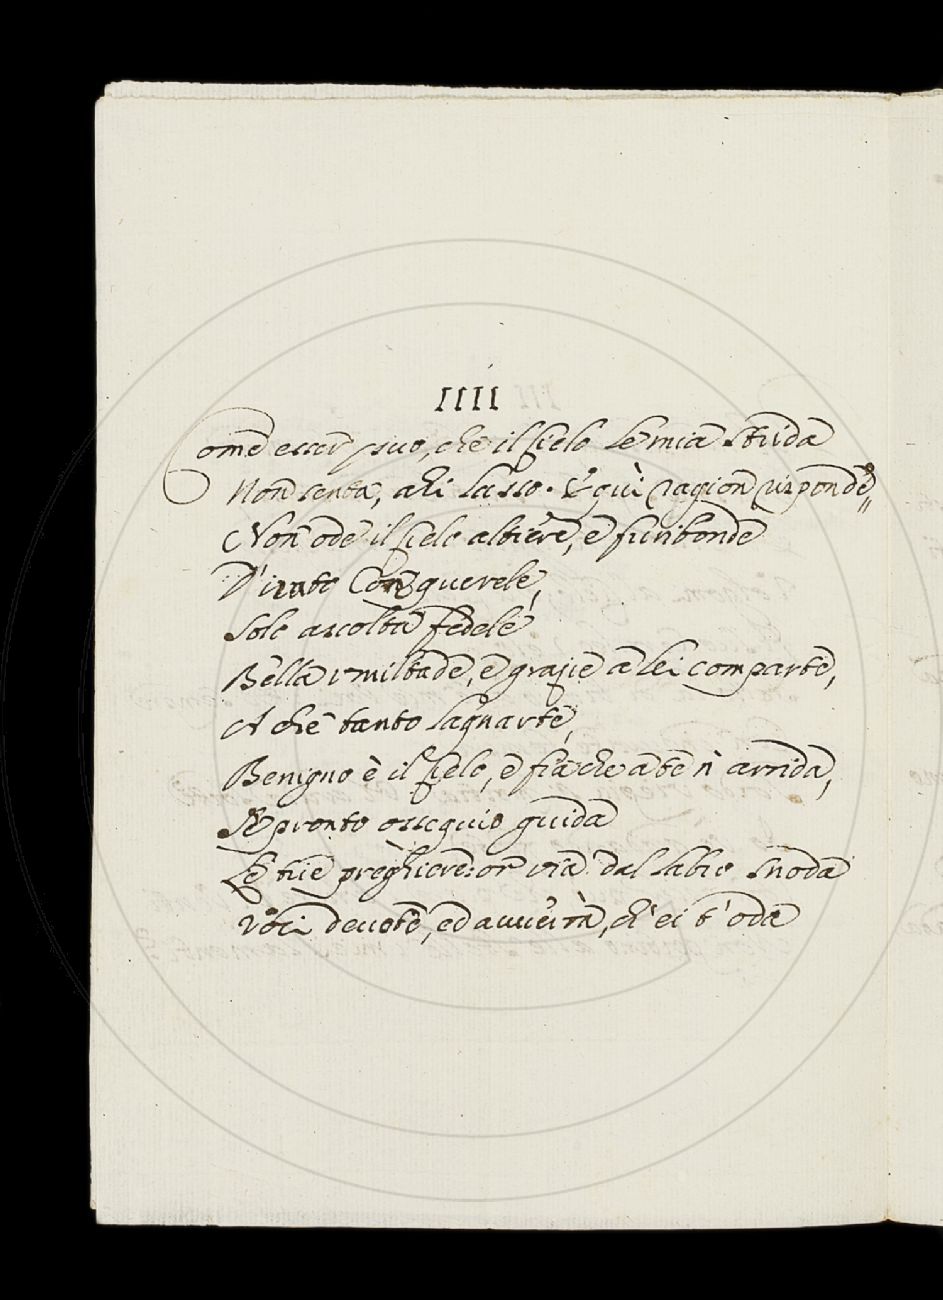 IIII
Come esser può, che il Cielo le mia strida
Non senta, ahi lasso. E qui ragion risponde,,
Non ode il Cielo altiere, e furibonde
D'irato Cor querele,
Solo ascolta fedele
Bella vmiltade, e grazie a lei comparte,
A che tanto lagnarte,
Benigno è il Cielo, e fia che a te n' arrida,
Se pronto ossequio guida
Le tue preghiere: or via dal labro snoda
Voci deuote, ed auuerrà, ch' ei t' oda